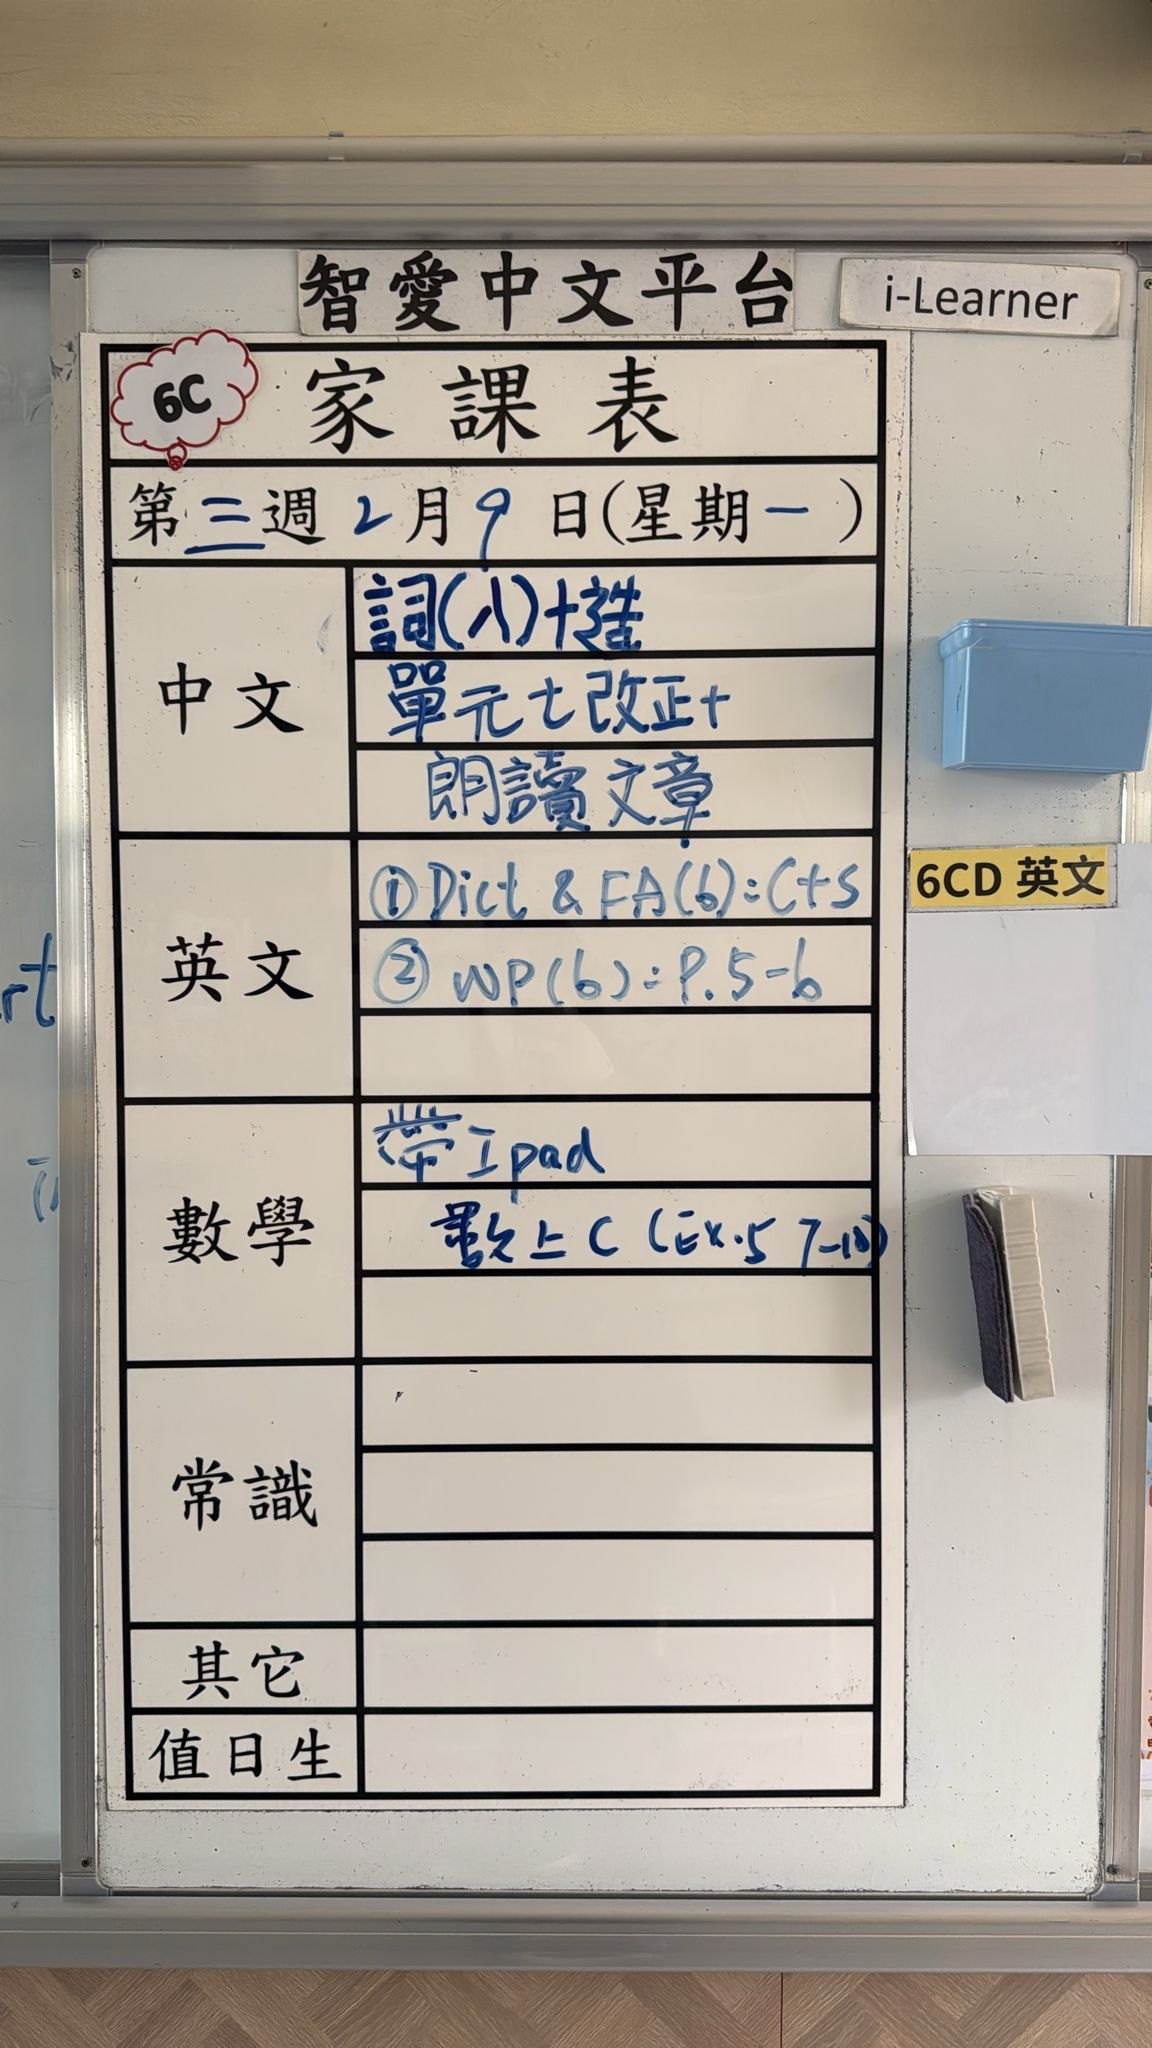 智愛中文平台
i-Learner
6C
家課表
第三週2月9日(星期一)
中文
詞(八)+造
單元七改正+
朗讀文章
英文
①Dict & FA(6):C+S
②WP(6):P.5-6
6CD 英文
數學
帶Ipad
數上C (Ex.5 7-10)
常識
其它
值日生
rt